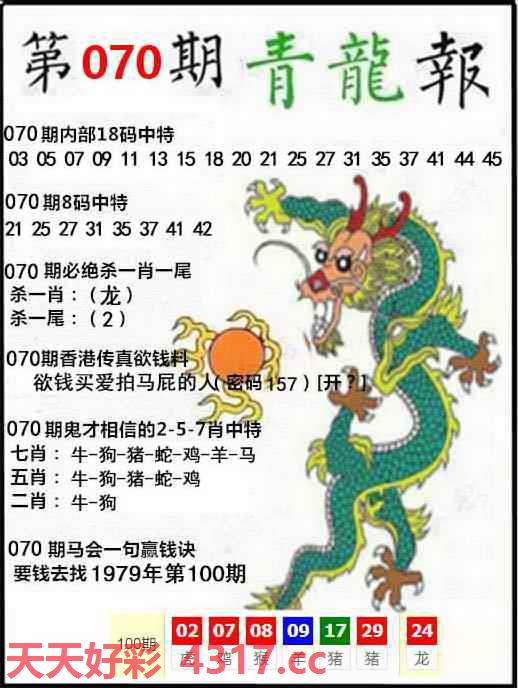 第070期青龍報
070期内部18码中特
03 05 07 09 11 13 15 18 20 21 25 27 31 35 37 41 44 45
070期8码中特
21 25 27 31 35 37 41 42
070期必绝杀一肖一尾
杀一肖：（龙）
杀一尾：（2）
070期香港传真欲钱料
欲钱买爱拍马屁的人(密码157)[开?]
070期鬼才相信的2-5-7肖中特
七肖：牛-狗-猪-蛇-鸡-羊-马
五肖：牛-狗-猪-蛇-鸡
二肖：牛-狗
070期马会一句赢钱诀
要钱去找1979年第100期
100期 02 07 08 09 17 29 24
虎 鸡 猴 羊 猪 猪 龙
天天好彩 4317.cc